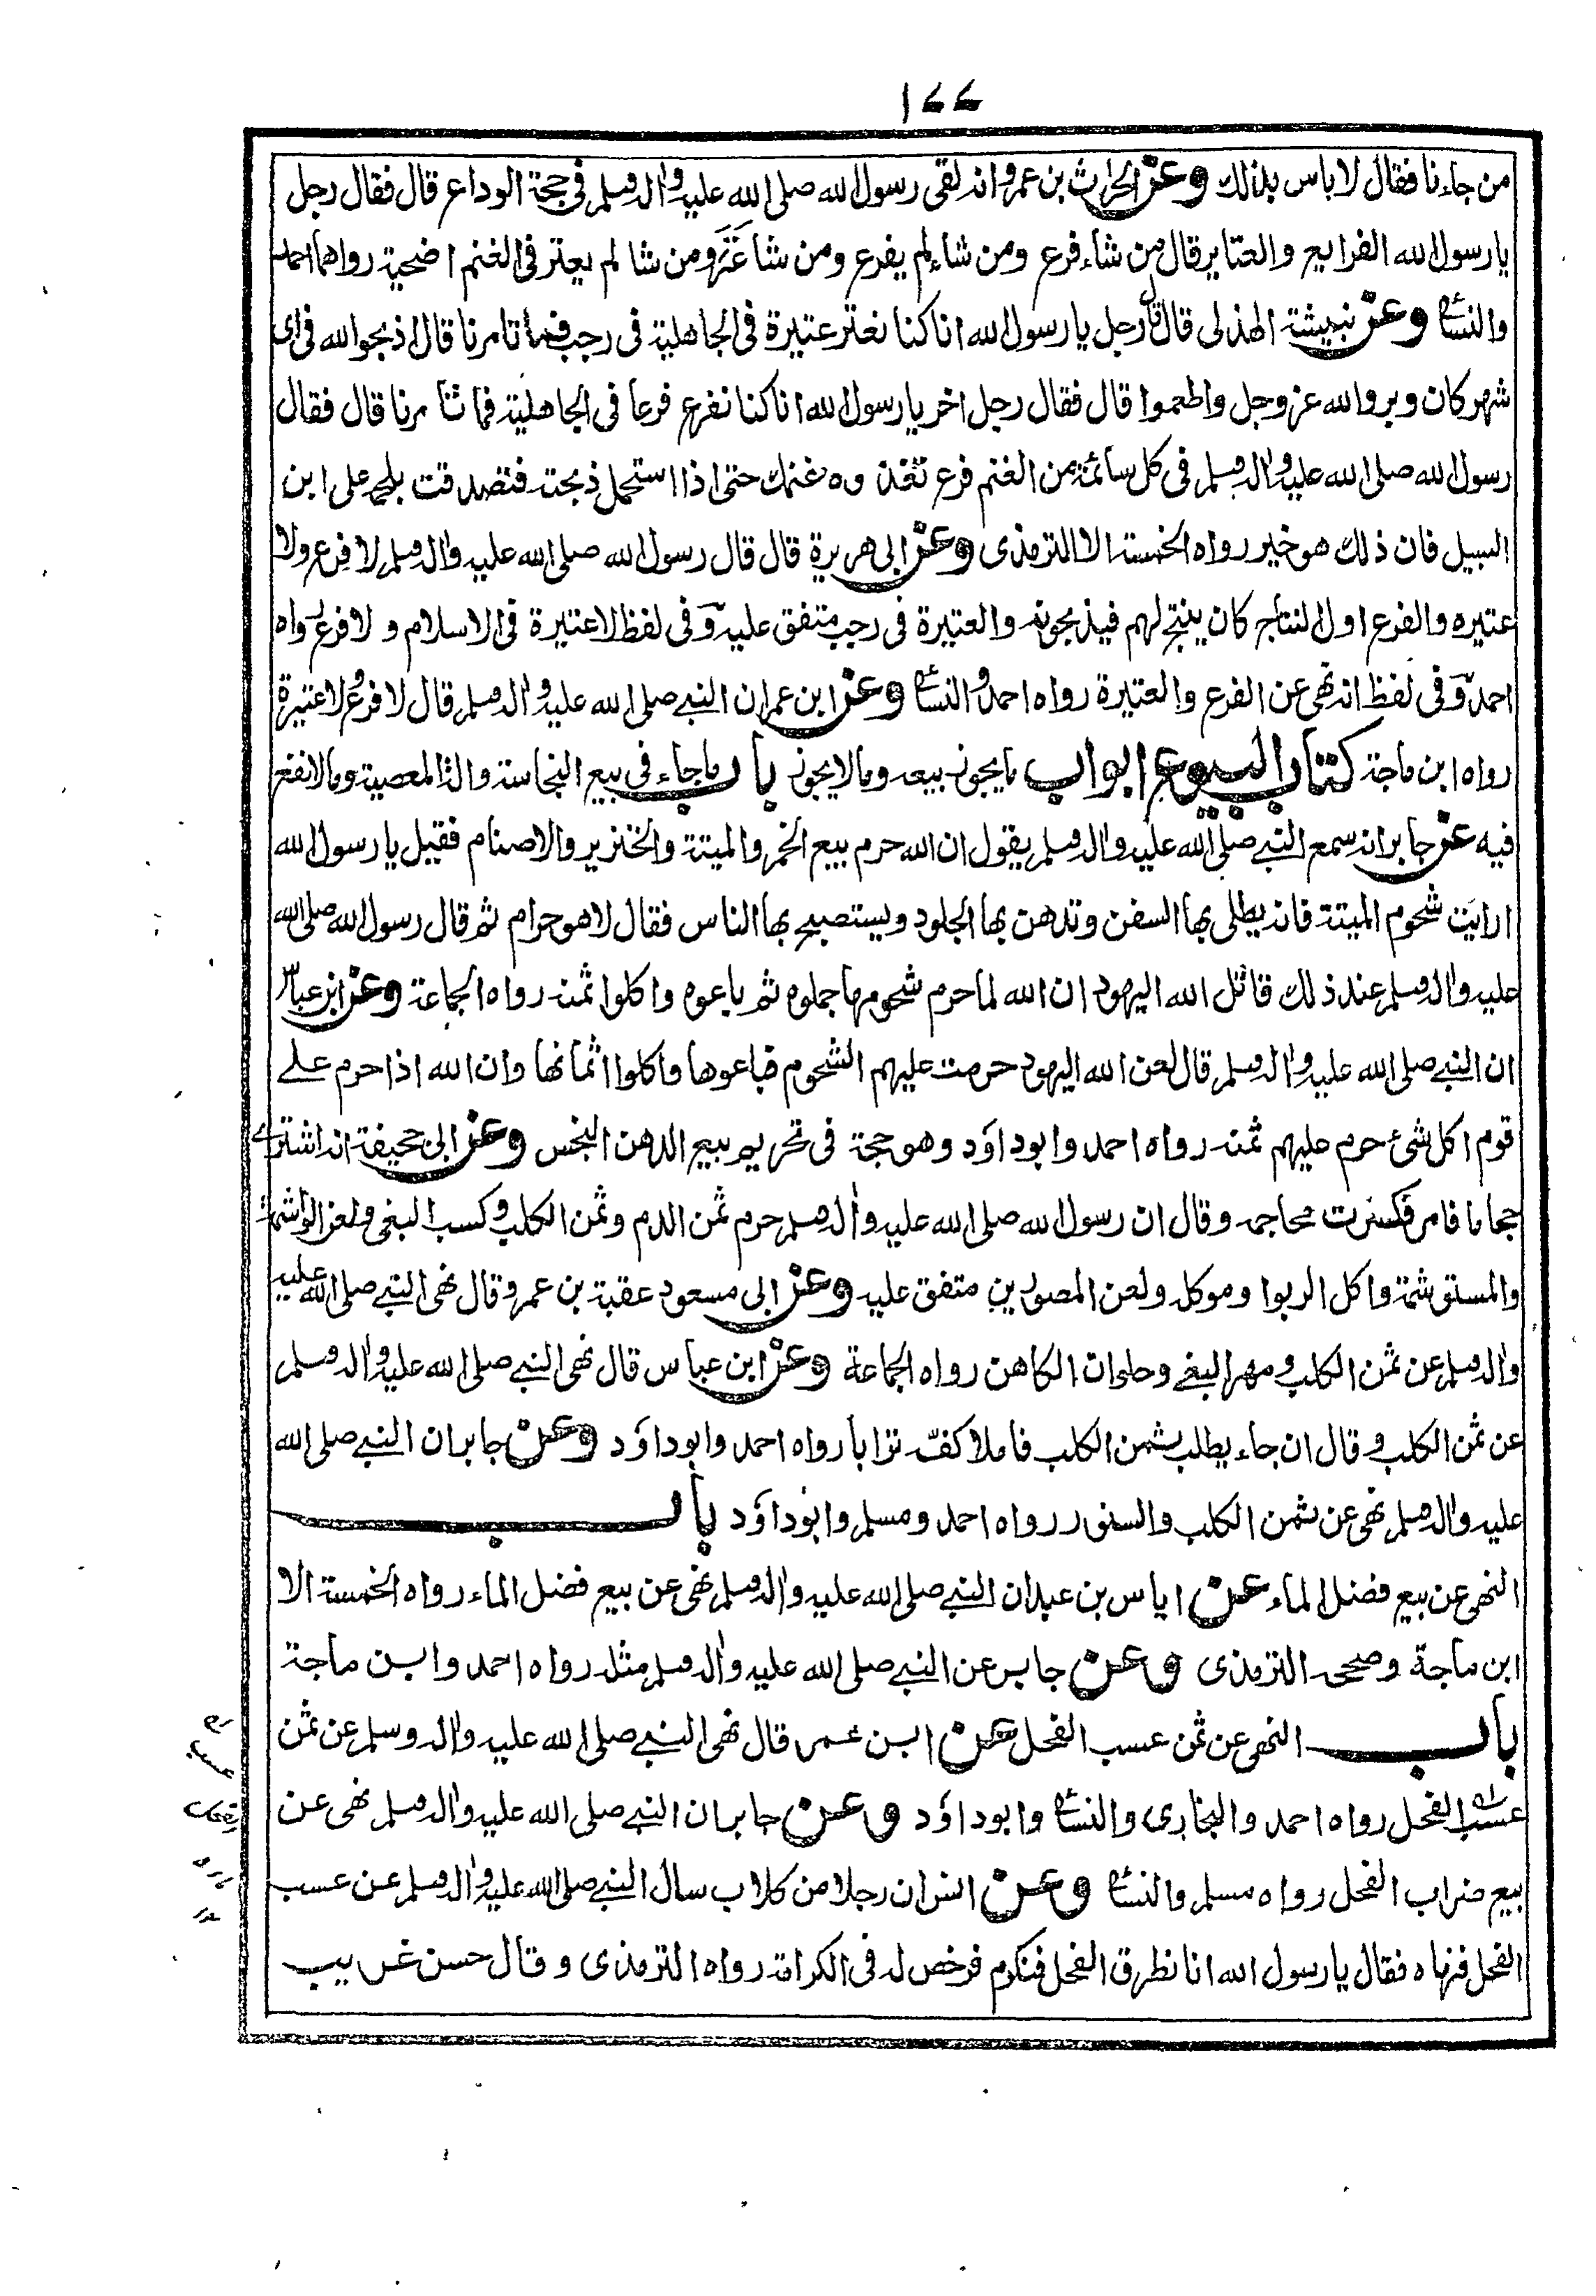 ١٧٧
من جاءنا فقال لا باس بذلك وعن الحارث بن عمرو انه لقى رسول الله صلى الله عليه واله وسلم فى حجة الوداع قال فقال رجل
يا رسول الله الفرايع والعتاير قال من شاء فرع ومن شاء لم يفرع ومن شا عَتَرَ ومن شا لم يعتر فى الغنم اضحية رواهما احمد
والنسائى وعن نبيشة الهذلى قال قال رجل يا رسول الله انا كنا نعتر عتيرة فى الجاهلية فى رجب فما تامرنا قال اذبحوا لله فى اى
شهر كان وبروا الله عز وجل واطعموا قال فقال رجل اخر يا رسول الله انا كنا نفرع فرعا فى الجاهلية فما تا مرنا قال فقال
رسول الله صلى الله عليه واله وسلم فى كل سائمة من الغنم فرع تغذ وه غنمك حتى اذا استحمل ذبحته فتصدقت بلحمه على ابن
السبيل فان ذلك هو خير رواه الخمسة الا الترمذى وعن ابى هريرة قال قال رسول الله صلى الله عليه واله وسلم لا فرع ولا
عتيره والفرع اول النتاج كان ينتج لهم فيذبحونه والعتيرة فى رجب متفق عليه وفى لفظ لا عتيرة فى الاسلام ولا فرع رواه
احمد وفى لفظ انه نهى عن الفرع والعتيرة رواه احمد والنسائى وعن ابن عمر ان النبى صلى الله عليه واله وسلم قال لا فرع ولا عتيرة
رواه ابن ماجة كتاب البيوع ابواب ما يجوز بيعه وما لا يجوز باب ما جاء فى بيع النجاسة والة المعصية وما لا نفع
فيه عن جابر انه سمع النبى صلى الله عليه واله وسلم يقول ان الله حرم بيع الخمر والميتة والخنزير والاصنام فقيل يا رسول الله
ارايت شحوم الميتة فانه يطلى بها السفن وتدهن بها الجلود ويستصبح بها الناس فقال لا هو حرام ثم قال رسول الله صلى الله
عليه واله وسلم عند ذلك قاتل الله اليهود ان الله لما حرم شحومها جملوه ثم باعوه واكلوا ثمنه رواه الجماعة وعن ابن عباس
ان النبى صلى الله عليه واله وسلم قال لعن الله اليهود حرمت عليهم الشحوم فباعوها واكلوا اثمانها وان الله اذا حرم على
قوم اكل شئ حرم عليهم ثمنه رواه احمد وابو داؤد وهو حجة فى تحريم بيع الدهن النجس وعن ابى جحيفة انه اشترى
حجاما فامر فكسرت محاجمه وقال ان رسول الله صلى الله عليه واله وسلم حرم ثمن الدم وثمن الكلب وكسب البغى ولعن الواشمة
والمستوشمة واكل الربوا وموكله ولعن المصورين متفق عليه وعن ابى مسعود عقبة بن عمرو قال نهى النبى صلى الله عليه
واله وسلم عن ثمن الكلب ومهر البغى وحلوان الكاهن رواه الجماعة وعن ابن عباس قال نهى النبى صلى الله عليه واله وسلم
عن ثمن الكلب وقال ان جاء يطلب ثمن الكلب فاملا كفّه ترابا رواه احمد وابو داؤد وعن جابر ان النبى صلى الله
عليه واله وسلم نهى عن ثمن الكلب والسنور رواه احمد ومسلم وابو داؤد باب
النهى عن بيع فضل الماء عن اياس بن عبد ان النبى صلى الله عليه واله وسلم نهى عن بيع فضل الماء رواه الخمسة الا
ابن ماجة وصححه الترمذى وعن جابر عن النبى صلى الله عليه واله وسلم مثله رواه احمد وابن ماجة
باب النهى عن ثمن عسب الفحل عن ابن عمر قال نهى النبى صلى الله عليه واله وسلم عن ثمن
عسب الفحل رواه احمد والبخارى والنسائى وابو داؤد وعن جابر ان النبى صلى الله عليه واله وسلم نهى عن
بيع ضراب الفحل رواه مسلم والنسائى وعن انس ان رجلا من كلاب سال النبى صلى الله عليه واله وسلم عن عسب
الفحل فنهاه فقال يا رسول الله انا نطرق الفحل فنكرم فرخص له فى الكرامة رواه الترمذى وقال حسن غريب